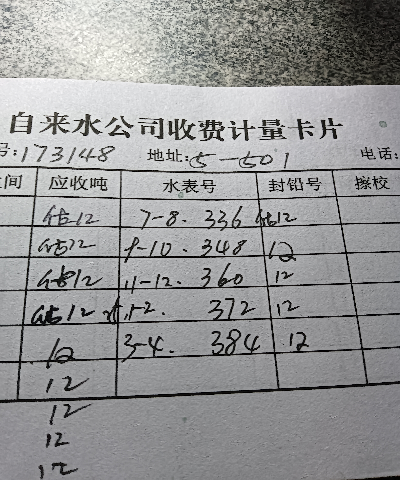 自来水公司收费计量卡片
号:173148 地址:5-501 电话:
间 应收吨 水表号 封铅号 擦校
12 7-8. 336 12
12 9-10. 348 12
12 11-12. 360 12
12 1-2. 372 12
12 3-4. 384 12
12
12
12
12